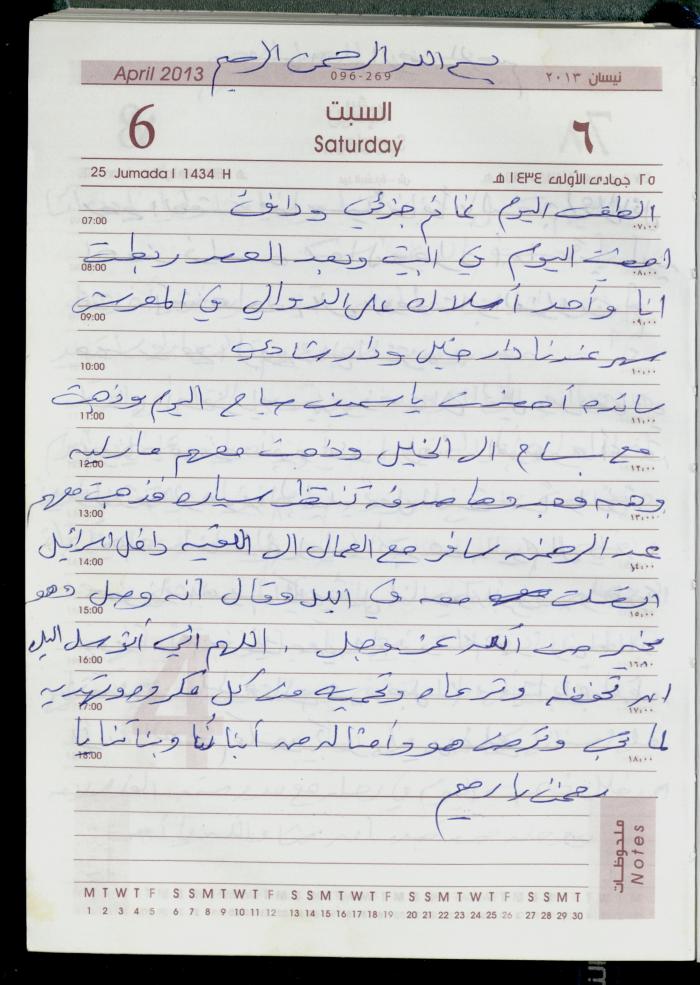 بسم الله الرحمن الرحيم
April 2013
096-269
نيسان ٢٠١٣
6
السبت
Saturday
٦
25 Jumada I 1434 H
٢٥ جمادى الأولى ١٤٣٤ هـ
الطقس اليوم غائم جزئي ودافئ
07:00 ٠٧:٠٠
اليوم في البيت وبعد العصر ربطت
08:00 ٠٨:٠٠
انا وأحمد أسلاك على الدوالي في المعرش
09:00 ٠٩:٠٠
سهر عندنا دار خليل ودار شادي
10:00 ١٠:٠٠
سائده أحضرت ياسمين صباح اليوم وذهبت
11:00 ١١:٠٠
مع سماح الى الخليل وذهبت معهم
12:00 ١٢:٠٠
وهبه صدفة تنتظر سياره فذهبت معهم
13:00 ١٣:٠٠
عبد الرحمن سافر مع العمال الى داخل اسرائيل
14:00 ١٤:٠٠
اتصلت معه في الليل وقال انه وصل وهو
15:00 ١٥:٠٠
بخير من الله عز وجل . اللهم اني أتوسل اليك
16:00 ١٦:٠٠
ان تحفظه وترعاه وتحميه من كل مكروه وتهديه
17:00 ١٧:٠٠
لما تحب وترضى هو وأمثاله من أبنائنا وبناتنا يا
18:00 ١٨:٠٠
رحمن يا رحيم
ملحوظات
Notes
M T W T F S S M T W T F S S M T W T F S S M T W T F S S M T
1 2 3 4 5 6 7 8 9 10 11 12 13 14 15 16 17 18 19 20 21 22 23 24 25 26 27 28 29 30